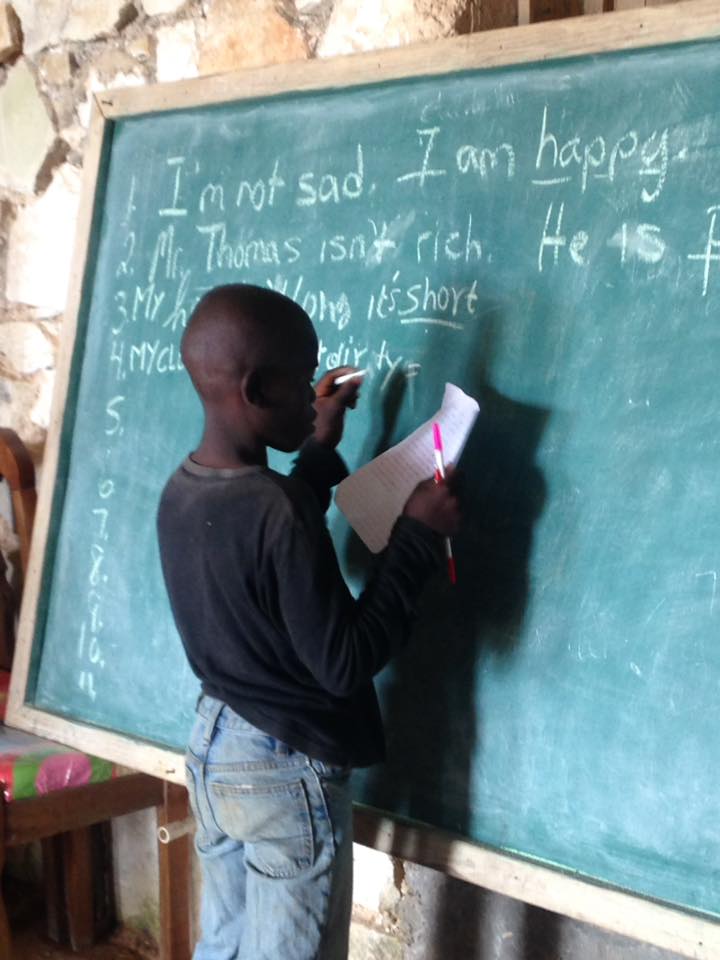 1. I'm not sad. I am happy.
2. Mr, Thomas isn't rich. He is
3. My long it's short
4. My dirty=
5.
6
7.
8.
9.
10.
11.